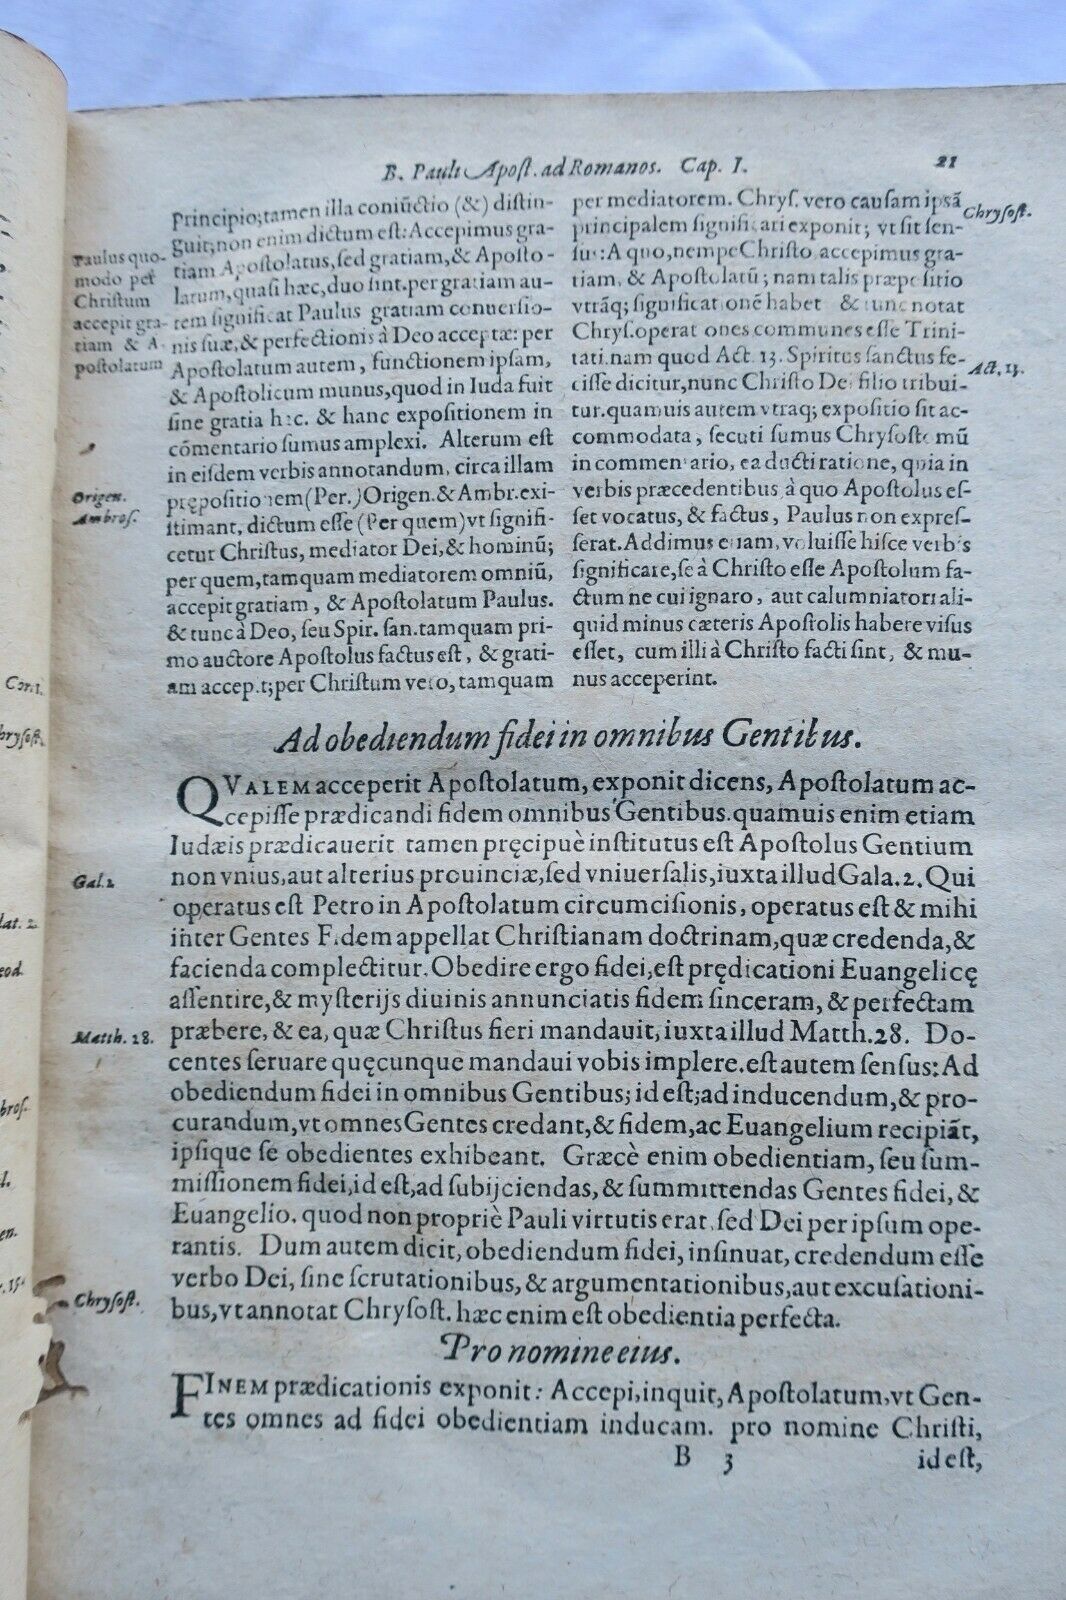 B. Pauli Apoſt. ad Romanos. Cap. I.
21
Principio; tamen illa coniũctio (&) diſtin-
guit; non enim dictum eſt: Accepimus gra-
tiam Apoſtolatus, ſed gratiam, & Apoſto-
latum, quaſi hæc, duo ſint. per gratiam au-
tem ſignificat Paulus gratiam conuerſio-
nis ſuæ, & perfectionis à Deo acceptæ: per
Apoſtolatum autem, functionem ipſam,
& Apoſtolicum munus, quod in Iuda fuit
ſine gratia hęc. & hanc expoſitionem in
cõmentario ſumus amplexi. Alterum eſt
in eiſdem verbis annotandum, circa illam
prępoſitionem (Per.) Origen. & Ambr. exi-
ſtimant, dictum eſſe (Per quem) vt ſignifi-
cetur Chriſtus, mediator Dei, & hominũ;
per quem, tamquam mediatorem omniũ,
accepit gratiam, & Apoſtolatum Paulus.
& tunc à Deo, ſeu Spir. ſan. tamquam pri-
mo auctore Apoſtolus factus eſt, & grati-
am accepit; per Chriſtum vero, tamquam
Paulus quo-
modo per
Chriſtum
accepit gra-
tiam & A-
poſtolatum
Origen.
Ambroſ.
per mediatorem. Chryſ. vero cauſam ipſã
principalem ſignificari exponit; vt ſit ſen-
ſus: A quo, nempe Chriſto accepimus gra-
tiam, & Apoſtolatũ; nam talis præpoſitio
vtrãq; ſignificationẽ habet & tunc notat
Chryſ. operationes communes eſſe Trini-
tati. nam quod Act. 13. Spiritus ſanctus fe-
ciſſe dicitur, nunc Chriſto Dei filio tribui-
tur. quamuis autem vtraq; expoſitio ſit ac-
commodata, ſecuti ſumus Chryſoſtomũ
in commentario, ea ducti ratione, quia in
verbis præcedentibus à quo Apoſtolus eſ-
ſet vocatus, & factus, Paulus non expreſ-
ſerat. Addimus etiam, voluiſſe hiſce verbis
ſignificare, ſe à Chriſto eſſe Apoſtolum fa-
ctum ne cui ignaro, aut calumniatori ali-
quid minus cæteris Apoſtolis habere viſus
eſſet, cum illi à Chriſto facti ſint, & mu-
nus acceperint.
Chryſoſt.
Act. 13.
Ad obediendum fidei in omnibus Gentibus.
QVALEM acceperit Apoſtolatum, exponit dicens, Apoſtolatum ac-
cepiſſe prædicandi fidem omnibus Gentibus. quamuis enim etiam
Iudæis prædicauerit tamen pręcipuè inſtitutus eſt Apoſtolus Gentium
non vnius, aut alterius prouinciæ, ſed vniuerſalis, iuxta illud Gala. 2. Qui
operatus eſt Petro in Apoſtolatum circumciſionis, operatus eſt & mihi
inter Gentes Fidem appellat Chriſtianam doctrinam, quæ credenda, &
facienda complectitur. Obedire ergo fidei, eſt prędicationi Euangelicę
aſſentire, & myſterijs diuinis annunciatis fidem ſinceram, & perfectam
præbere, & ea, quæ Chriſtus fieri mandauit, iuxta illud Matth. 28. Do-
centes ſeruare quęcunque mandaui vobis implere. eſt autem ſenſus: Ad
obediendum fidei in omnibus Gentibus; id eſt; ad inducendum, & pro-
curandum, vt omnes Gentes credant, & fidem, ac Euangelium recipiãt,
ipſique ſe obedientes exhibeant. Græcè enim obedientiam, ſeu ſum-
miſſionem fidei, id eſt, ad ſubijciendas, & ſummittendas Gentes fidei, &
Euangelio. quod non propriè Pauli virtutis erat, ſed Dei per ipſum ope-
rantis. Dum autem dicit, obediendum fidei, inſinuat, credendum eſſe
verbo Dei, ſine ſcrutationibus, & argumentationibus, aut excuſationi-
bus, vt annotat Chryſoſt. hæc enim eſt obedientia perfecta.
Gal. 2
Matth. 28.
Chryſoſt.
Pro nomine eius.
FINEM prædicationis exponit: Accepi, inquit, Apoſtolatum, vt Gen-
tes omnes ad fidei obedientiam inducam. pro nomine Chriſti,
B 3
id eſt,